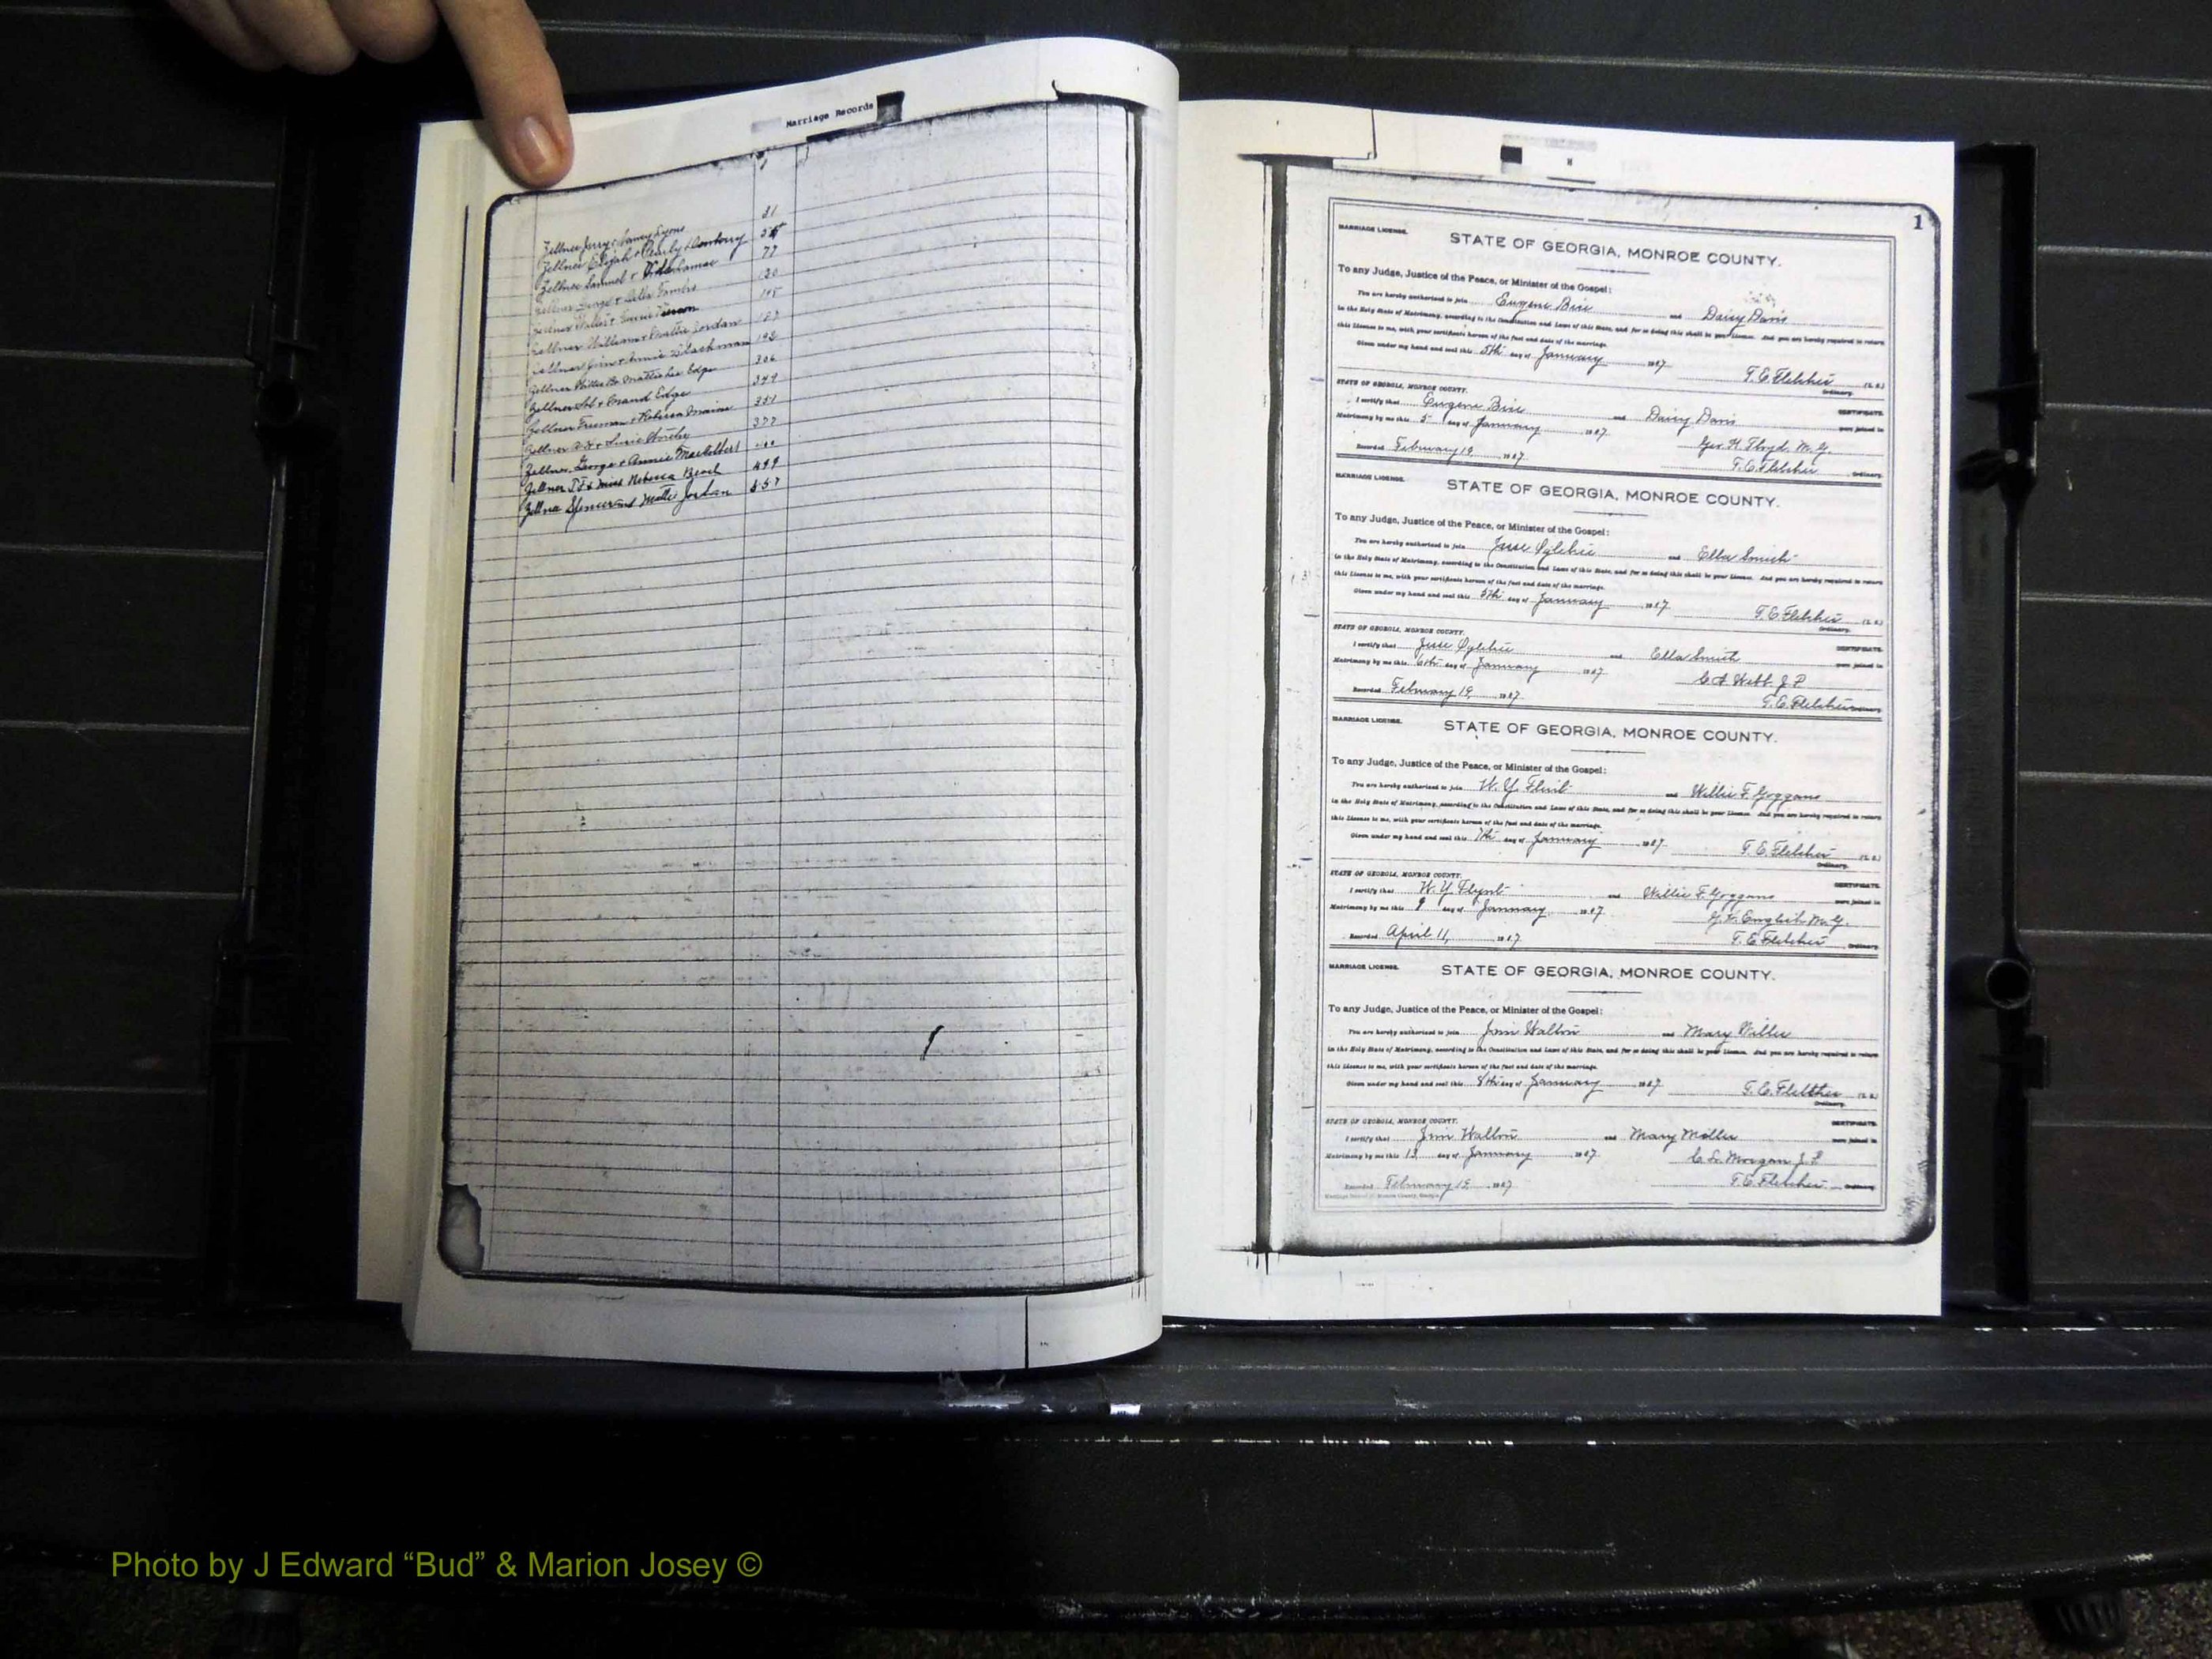 Marriage Records
Zellner Jerry & Nancy Lyons 31
Zellner Elijah & Pearly
Zellner Samuel & 77
Zellner
Zellner
Zellner William & Mattie Jordan
Zellner Jim & Annie Blackman 192
Zellner Willie B. Edge 306
Zellner Sol & Maud Edge 349
Zellner Freeman & Rebecca 351
Zellner & Susie 377
Zellner, George & Annie
Zellner J F & Miss Rebecca 499
Zellner Spencer and Mattie Jordan 557
1
MARRIAGE LICENSE.
STATE OF GEORGIA, MONROE COUNTY.
To any Judge, Justice of the Peace, or Minister of the Gospel:
You are hereby authorized to join Eugene and Daisy Davis
in the Holy State of Matrimony, according to the Constitution and Laws of this State, and for so doing this shall be your License. And you are hereby required to return
this License to me, with your certificate hereon of the fact and date of the marriage.
Given under my hand and seal this 5th day of January 1917
T. E. Fletcher (L. S.)
Ordinary.
STATE OF GEORGIA, MONROE COUNTY. CERTIFICATE.
I certify that Eugene and Daisy Davis were joined in
Matrimony by me this 5 day of January 1917 Geo. H. Floyd, M. G.
Recorded February 19, 1917. T. E. Fletcher Ordinary.
MARRIAGE LICENSE.
STATE OF GEORGIA, MONROE COUNTY.
To any Judge, Justice of the Peace, or Minister of the Gospel:
You are hereby authorized to join Jesse and Ella Smith
in the Holy State of Matrimony, according to the Constitution and Laws of this State, and for so doing this shall be your License. And you are hereby required to return
this License to me, with your certificate hereon of the fact and date of the marriage.
Given under my hand and seal this 5th day of January 1917
T. E. Fletcher (L. S.)
Ordinary.
STATE OF GEORGIA, MONROE COUNTY. CERTIFICATE.
I certify that Jesse and Ella Smith were joined in
Matrimony by me this 6th day of January 1917 C A Webb J P
Recorded February 19, 1917 T. E. Fletcher Ordinary.
MARRIAGE LICENSE.
STATE OF GEORGIA, MONROE COUNTY.
To any Judge, Justice of the Peace, or Minister of the Gospel:
You are hereby authorized to join W. Y. Flint and Willie F. Goggans
in the Holy State of Matrimony, according to the Constitution and Laws of this State, and for so doing this shall be your License. And you are hereby required to return
this License to me, with your certificate hereon of the fact and date of the marriage.
Given under my hand and seal this 7th day of January 1917
T. E. Fletcher (L. S.)
Ordinary.
STATE OF GEORGIA, MONROE COUNTY. CERTIFICATE.
I certify that W. Y. Flynt and Willie F Goggans were joined in
Matrimony by me this 9 day of January 1917 English M. G.
Recorded April 11, 1917 T. E. Fletcher Ordinary.
MARRIAGE LICENSE.
STATE OF GEORGIA, MONROE COUNTY.
To any Judge, Justice of the Peace, or Minister of the Gospel:
You are hereby authorized to join Jim Walton and Mary Miller
in the Holy State of Matrimony, according to the Constitution and Laws of this State, and for so doing this shall be your License. And you are hereby required to return
this License to me, with your certificate hereon of the fact and date of the marriage.
Given under my hand and seal this 8th day of January 1917
T. E. Fletcher (L. S.)
Ordinary.
STATE OF GEORGIA, MONROE COUNTY. CERTIFICATE.
I certify that Jim Walton and Mary Miller were joined in
Matrimony by me this 13 day of January 1917 C. L. Morgan J. P
Recorded February 19, 1917 T. E. Fletcher Ordinary.
Photo by J Edward “Bud” & Marion Josey ©